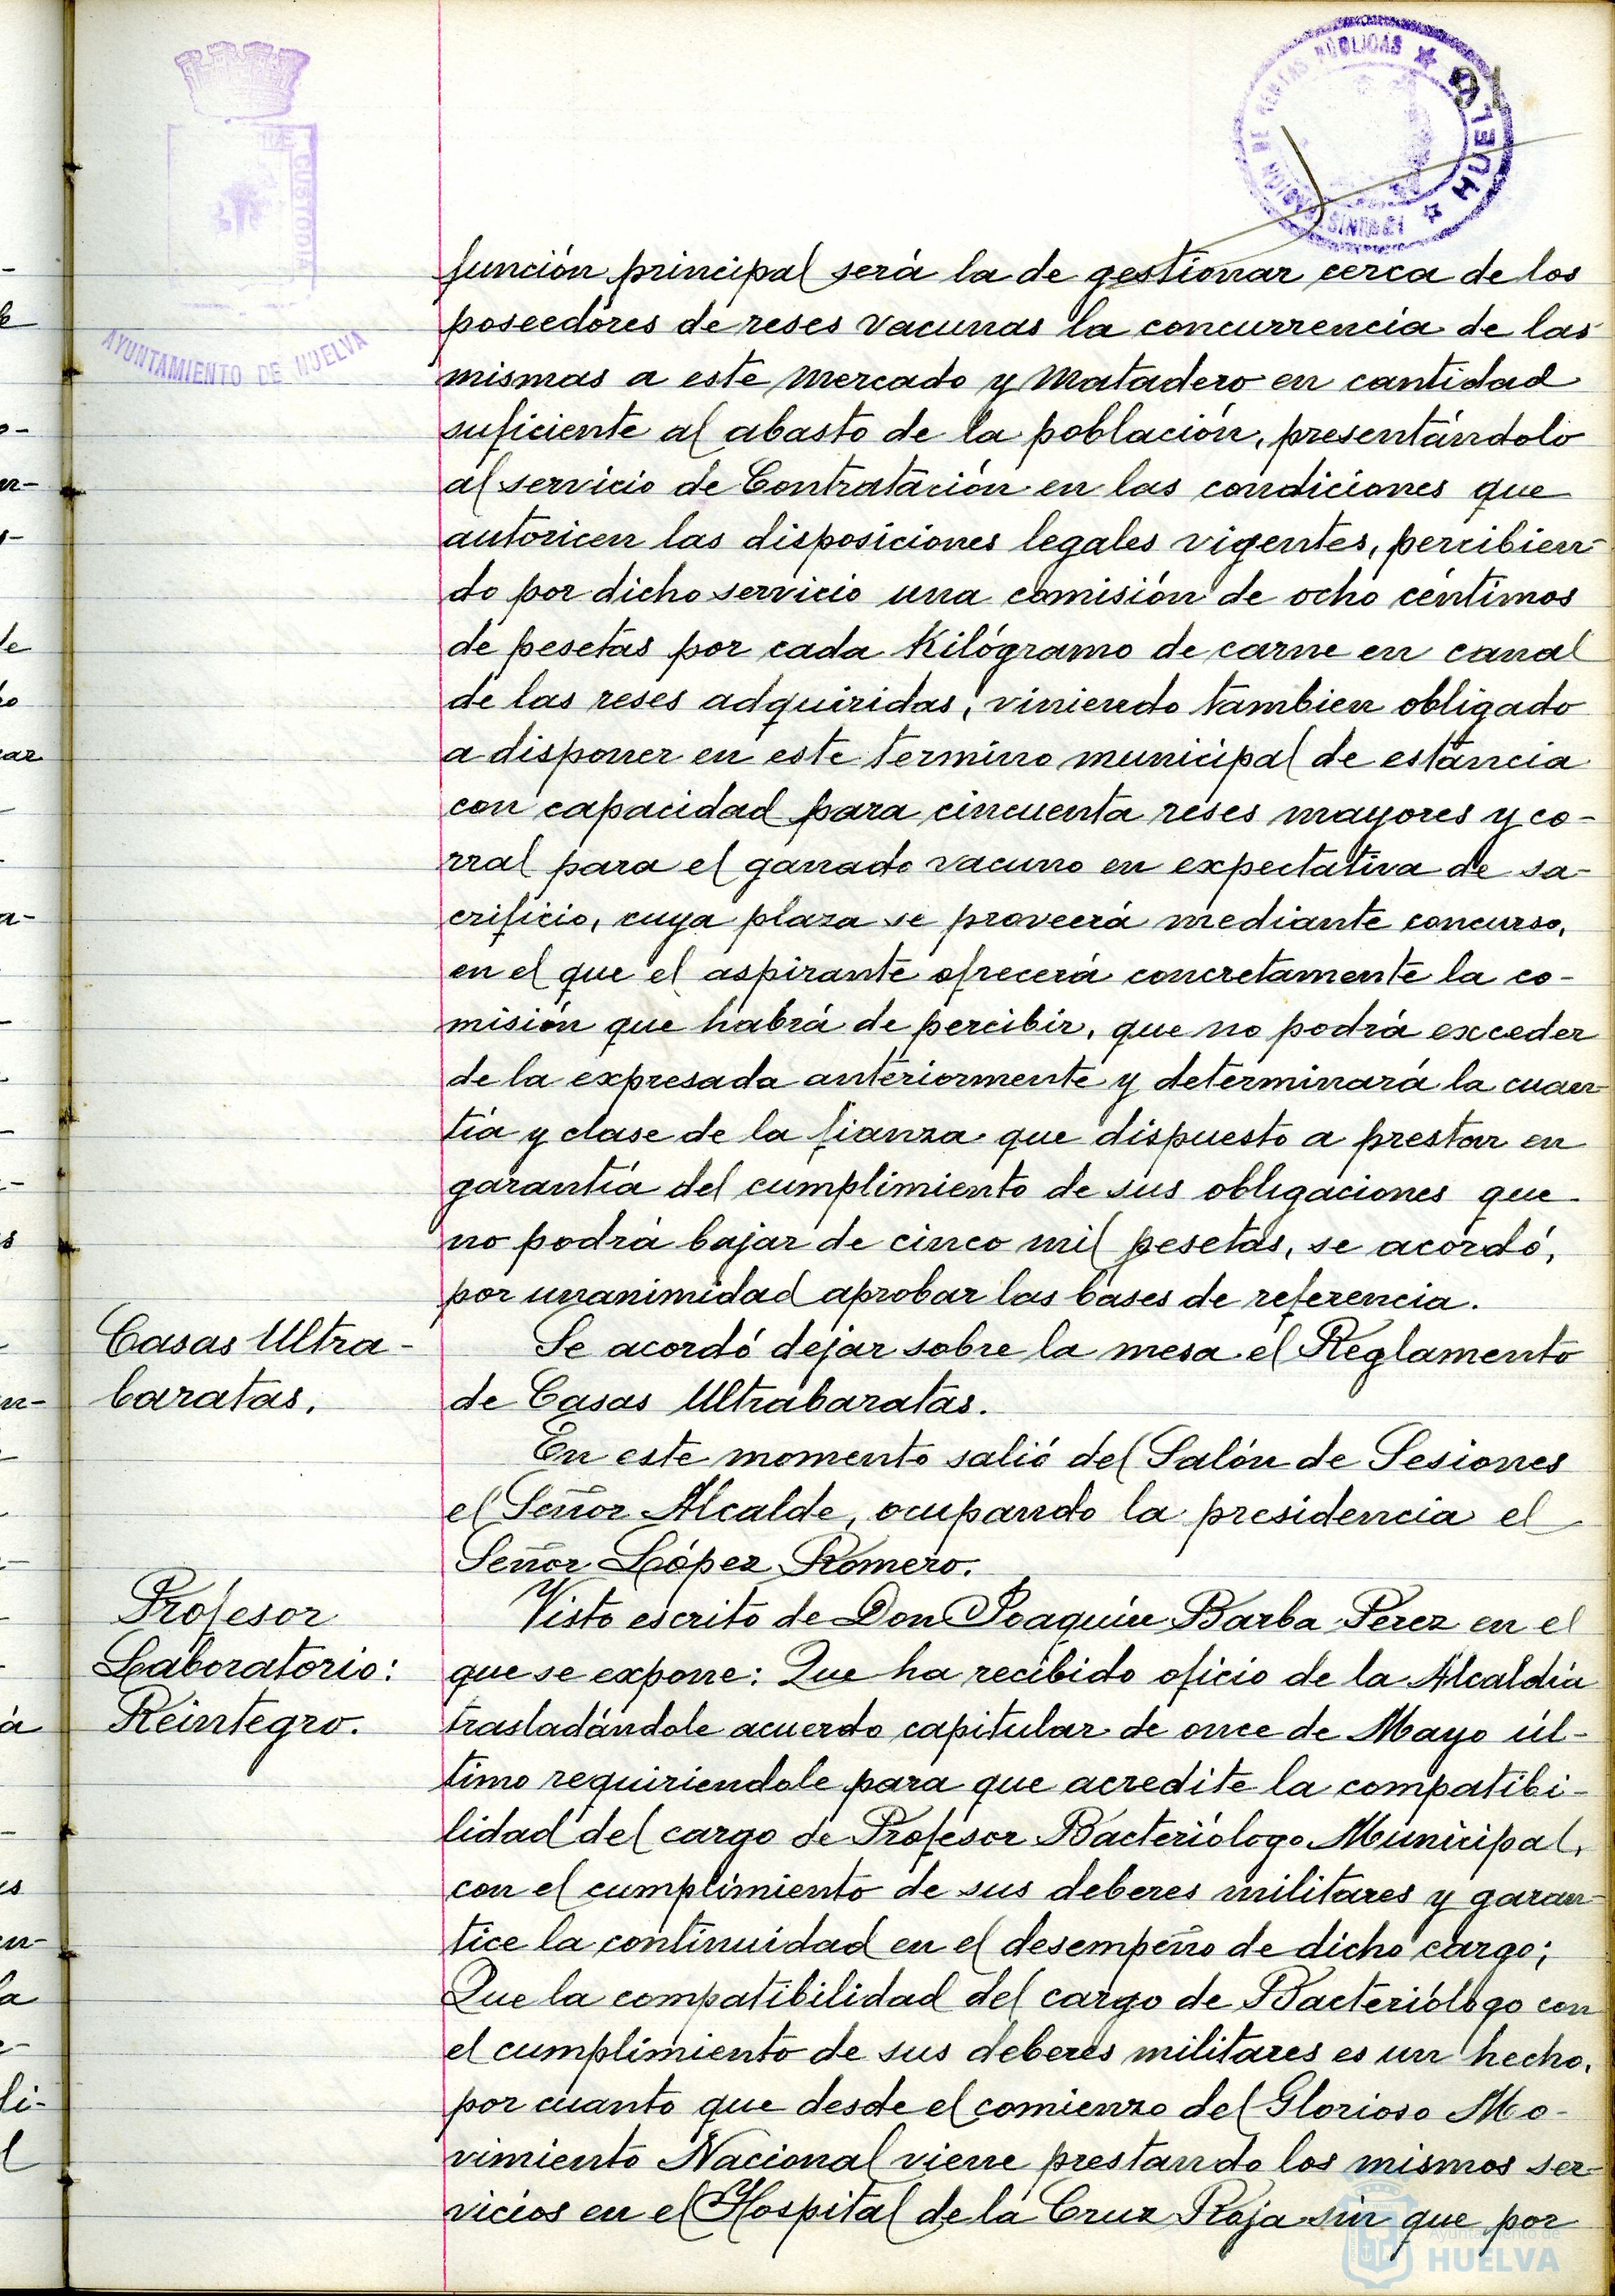 91
AYUNTAMIENTO DE HUELVA
HUELVA
función principal será la de gestionar cerca de los
poseedores de reses vacunas la concurrencia de las
mismas a este Mercado y Matadero en cantidad
suficiente al abasto de la población, presentándolo
al servicio de Contratación en las condiciones que
autoricen las disposiciones legales vigentes, percibien-
do por dicho servicio una comisión de ocho céntimos
de pesetas por cada Kilógramo de carne en canal
de las reses adquiridas, viniendo tambien obligado
a disponer en este termino municipal de estancia
con capacidad para cincuenta reses mayores y co-
rral para el ganado vacuno en expectativa de sa-
crificio, cuya plaza se proveerá mediante concurso,
en el que el aspirante ofrecerá concretamente la co-
misión que habrá de percibir, que no podrá exceder
de la expresada anteriormente y determinará la cuan-
tía y clase de la fianza que dispuesto a prestar en
garantía del cumplimiento de sus obligaciones que
no podrá bajar de cinco mil pesetas, se acordó,
por unanimidad aprobar las bases de referencia.
Casas Ultra-
baratas.
Se acordó dejar sobre la mesa el Reglamento
de Casas Ultrabaratas.
En este momento salió del Salón de Sesiones
el Señor Alcalde, ocupando la presidencia el
Señor López Romero.
Profesor
Laboratorio:
Reintegro.
Visto escrito de Don Joaquín Barba Perez en el
que se expone: Que ha recibido oficio de la Alcaldía
trasladándole acuerdo capitular de once de Mayo úl-
timo requiriendole para que acredite la compatibi-
lidad del cargo de Profesor Bacteriólogo Municipal,
con el cumplimiento de sus deberes militares y garan-
tice la continuidad en el desempeño de dicho cargo;
Que la compatibilidad del cargo de Bacteriólogo con
el cumplimiento de sus deberes militares es un hecho,
por cuanto que desde el comienzo del Glorioso Mo-
vimiento Nacional viene prestando los mismos ser-
vicios en el Hospital de la Cruz Roja sin que por
Ayuntamiento de
HUELVA